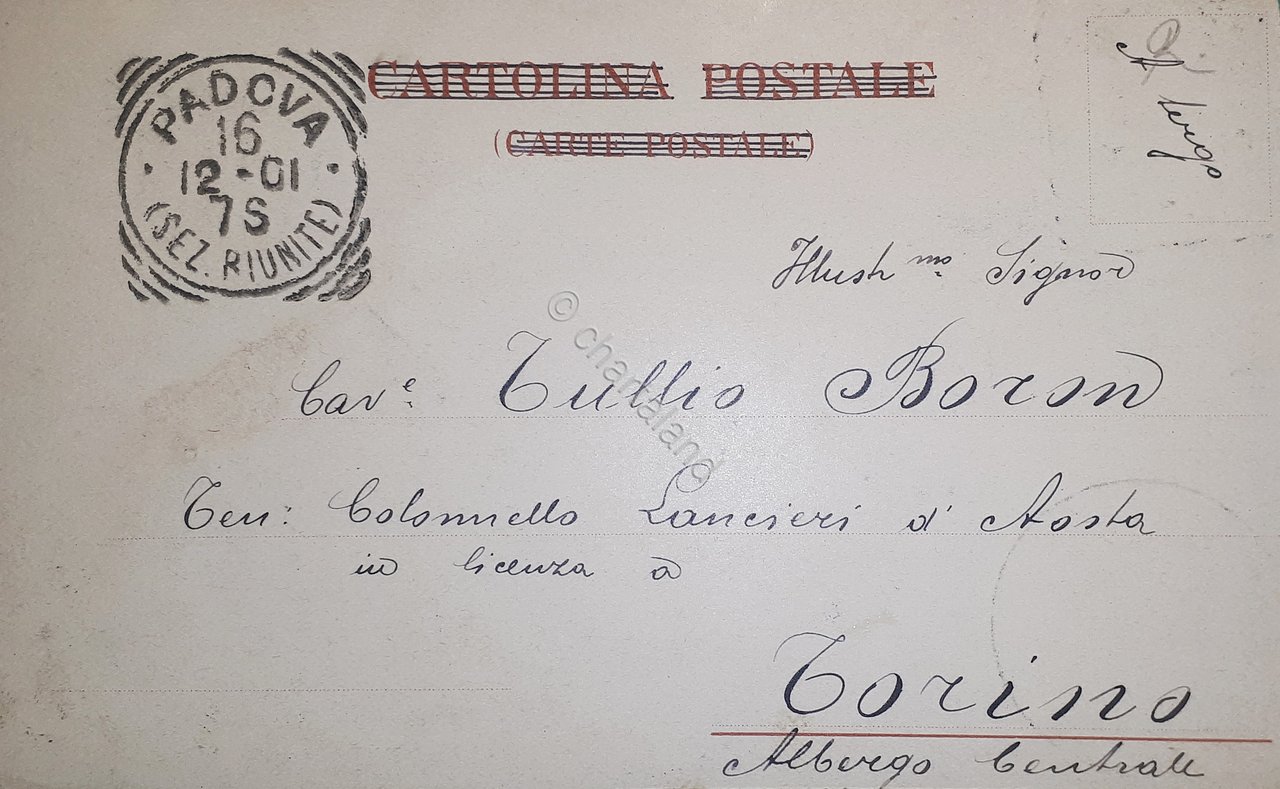 CARTOLINA POSTALE
(CARTE POSTALE)
PADOVA
16
12-01
7S
(SEZ. RIUNITE)
A tergo
Illustr mo Signor
Cav.e Tullio Boron
Ten: Colonnello Lancieri d' Aosta
in licenza à
Torino
Albergo Centrale
© chartaland